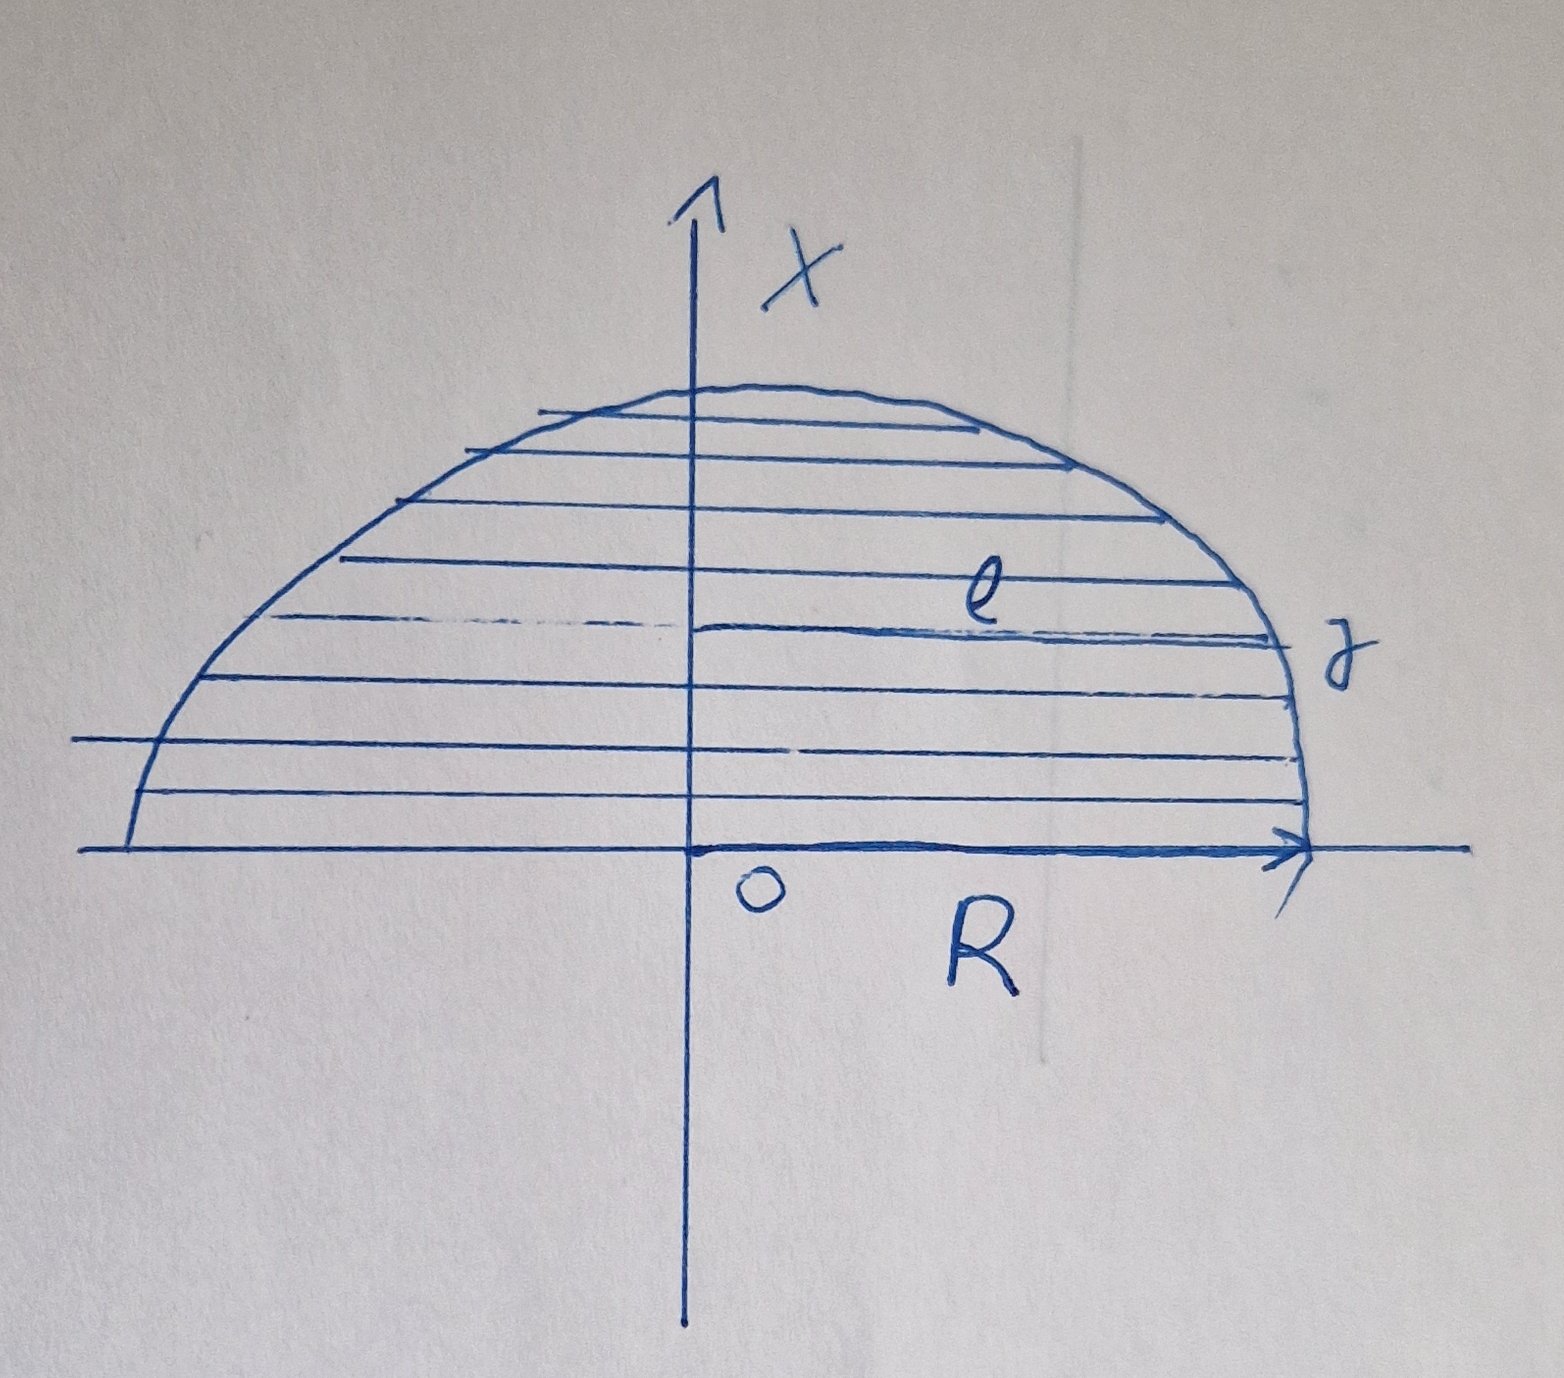 X
l
O
R